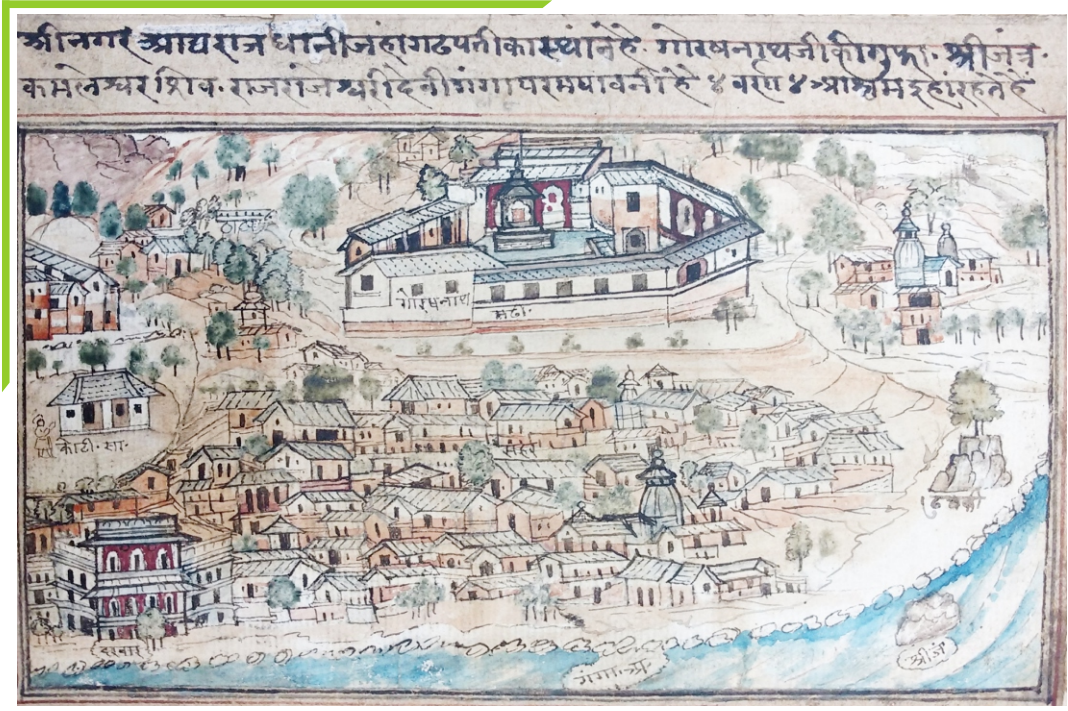 श्रीनगर आद्यराजधानी जहां गढपती का स्थांन है. गोरषनाथजी की गुफा. श्रीजंत्र.
कमलेश्वर शिव. राजरांजेश्वरी देवी गंगा परमपावनी है ४ वरण ४ आश्रम इहां रहते हैं
गोरषनाथ
मढी.
कोठी. सा.
सैहर
दरबार
गंगाजी
श्रीजं